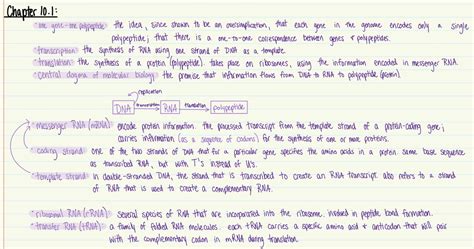 Chapter 10.1:
• one gene-one polypeptide: the idea, since shown to be an oversimplification, that each gene in the genome encodes only a single
polypeptide; that there is a one-to-one correspondence between genes + polypeptides.
• transcription: the synthesis of RNA using one strand of DNA as a template.
• translation: the synthesis of a protein (polypeptide). takes place on ribosomes, using the information encoded in messenger RNA.
• central dogma of molecular biology: the premise that information flows from DNA to RNA to polypeptide (protein).
replication
DNA transcription RNA translation polypeptide
• messenger RNA (mRNA): encode protein information. the processed transcript from the template strand of a protein-coding gene;
carries information (as a sequence of codons) for the synthesis of one or more proteins.
• coding strand: one of the two strands of DNA that for a particular gene specifies the amino acids in a protein. same base sequence
as transcribed RNA, but with T's instead of U's.
• template strand: in double-stranded DNA, the strand that is transcribed to create an RNA transcript. also refers to a strand
of RNA that is used to create a complementary RNA.
• ribosomal RNA (rRNA): several species of RNA that are incorporated into the ribosome. involved in peptide bond formation.
• transfer RNA (tRNA): a family of folded RNA molecules. each tRNA carries a specific amino acid + anticodon that will pair
with the complementary codon in mRNA during translation.